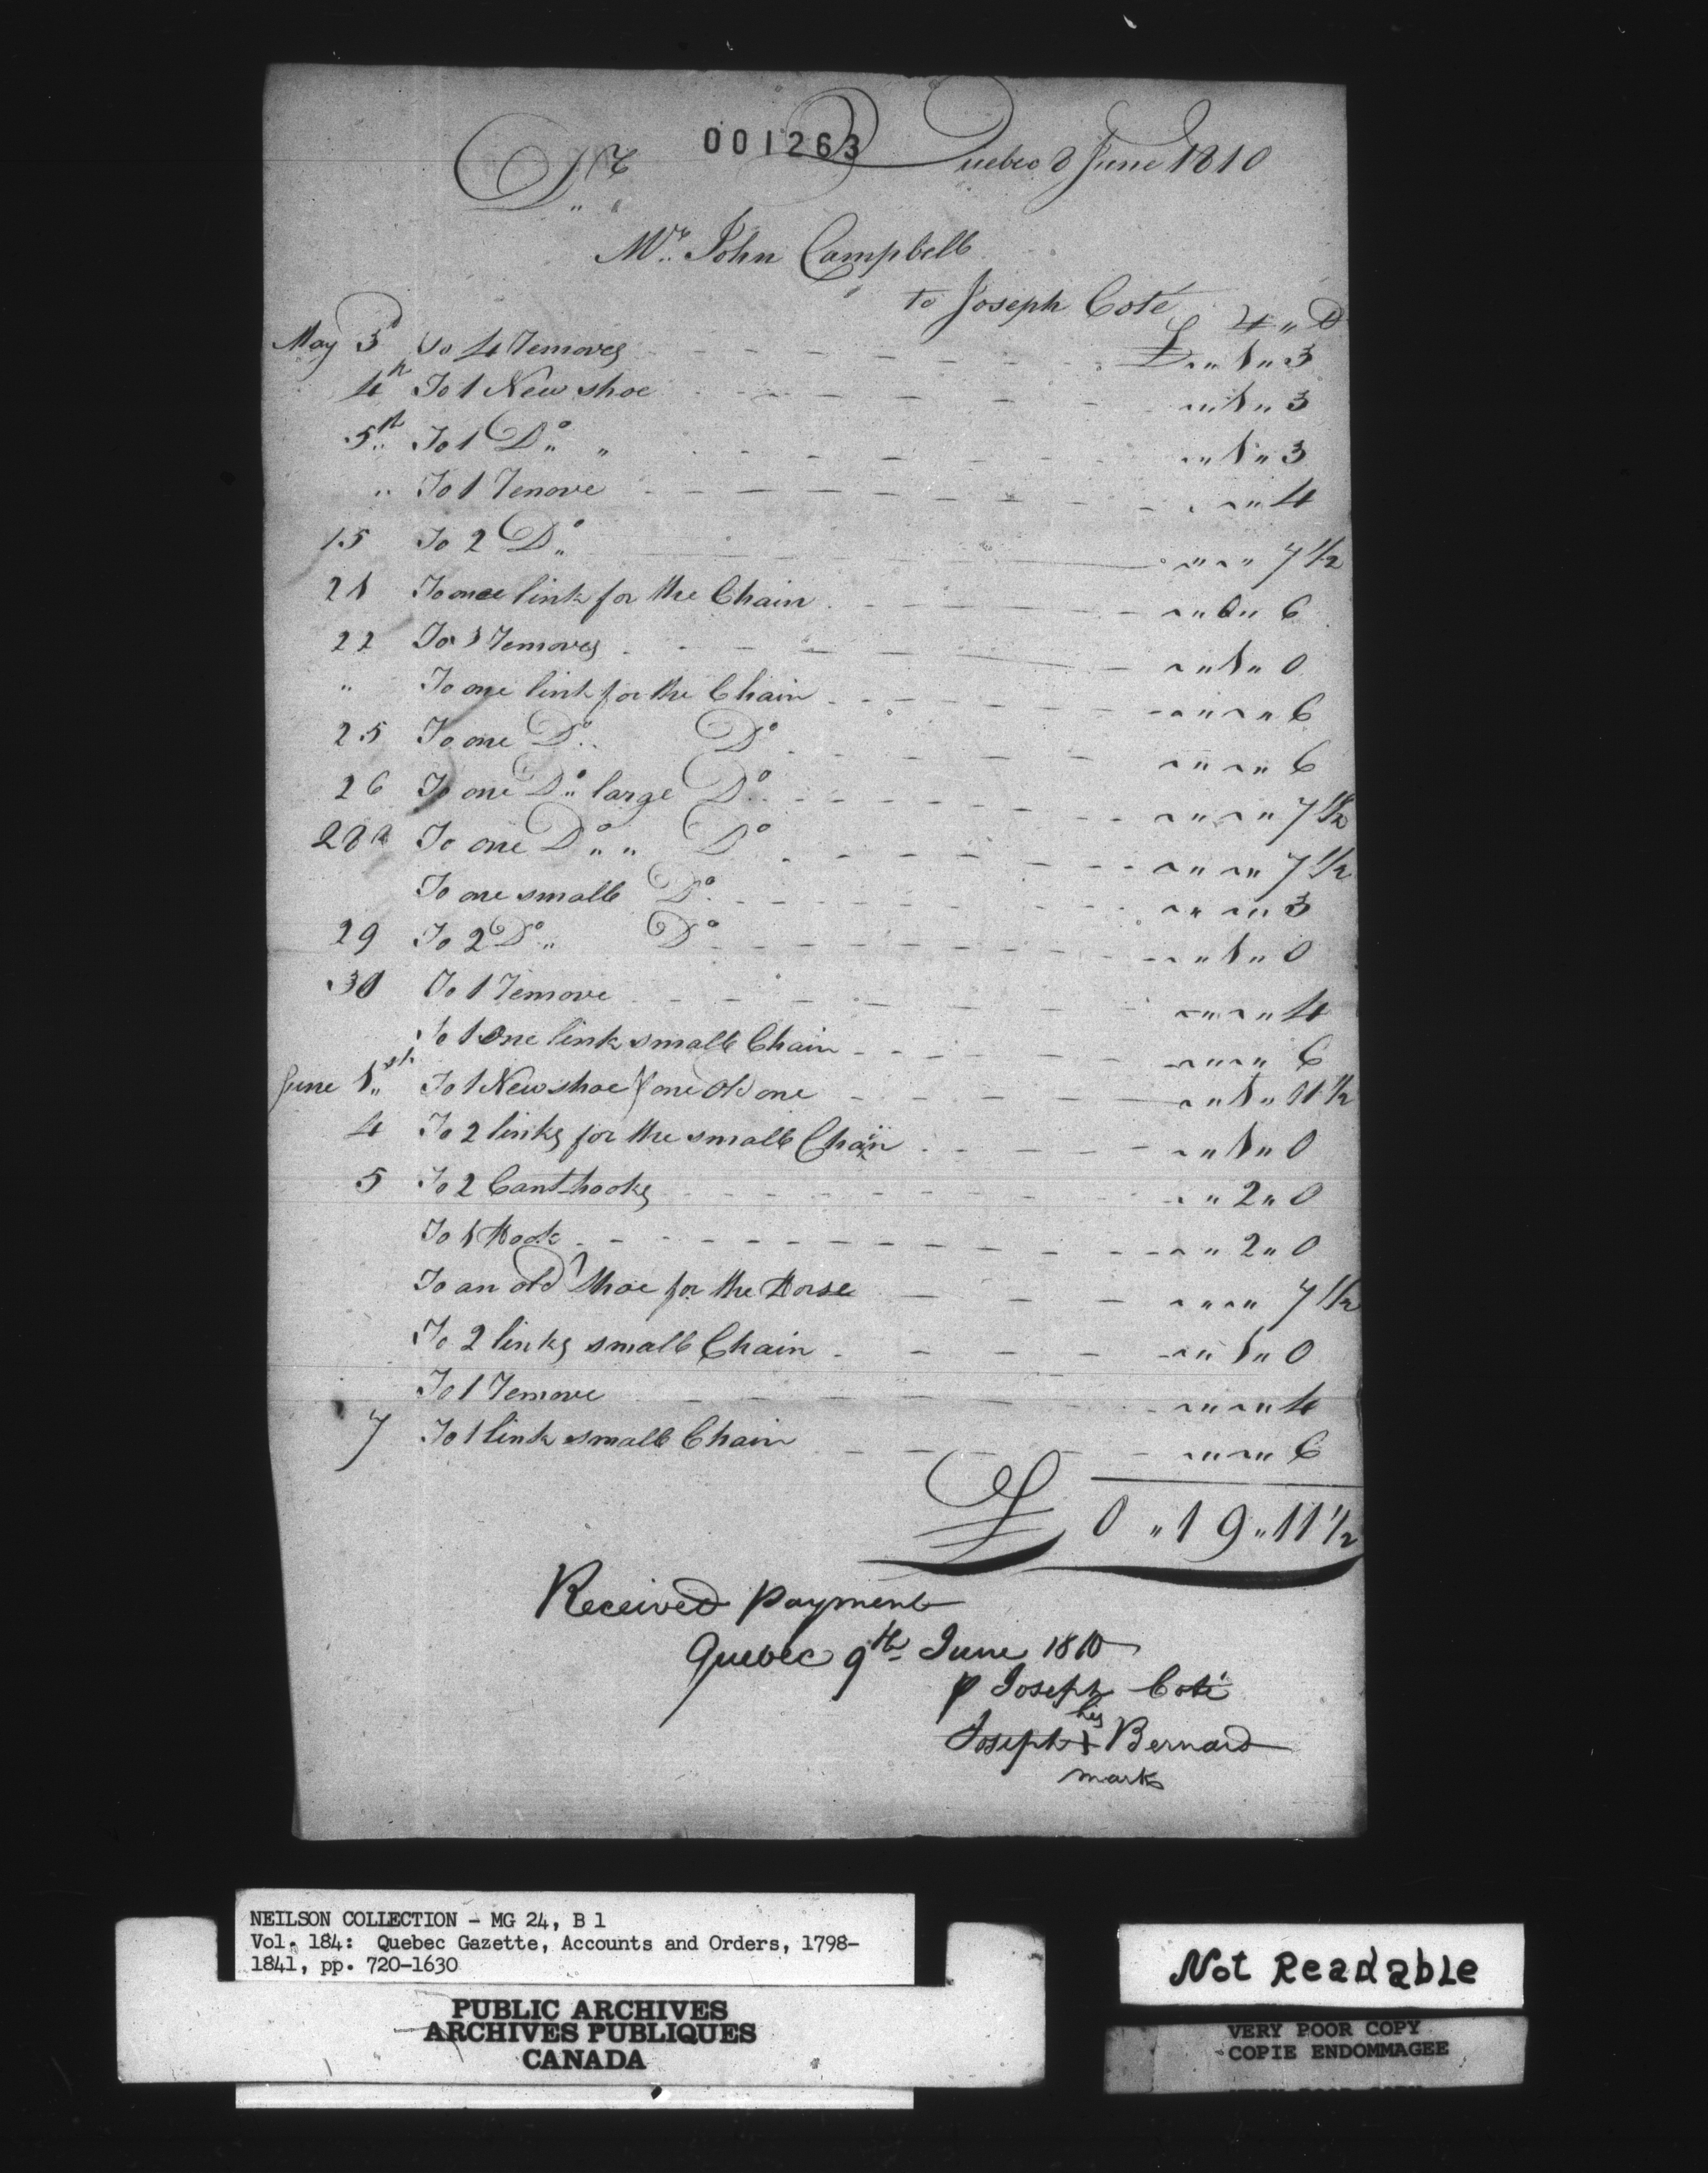 001263
Dr Quebec 8 June 1810
Mr. John Campbell
to Joseph Coté
£ " D
May 3d To 4 Removes £ " 1 " 3
4th To 1 New shoe " 1 " 3
5th To 1 Do " " 1 " 3
" To 1 Remove " " 4
15 To 2 Do " " 7 1/2
21 To one link for the Chain " 0 " 6
22 To 3 Removes " 1 " 0
" To one link for the Chain " " 6
25 To one Do Do " " 6
26 To one Do large Do " " 7 1/2
28th To one Do " Do " " 7 1/2
To one small Do " " 3
29 To 2 Do Do " 1 " 0
30 To 1 Remove " " 4
To 1 One link small Chain " " 6
June 1st To 1 New shoe & one Old one " 1 " 11 1/2
4 To 2 links for the small Chain " 1 " 0
5 To 2 Cant hooks " 2 " 0
To 1 Hook " 2 " 0
To an old Shoe for the Horse " " 7 1/2
To 2 links small Chain " 1 " 0
To 1 Remove " " 4
7 To 1 link small Chain " " 6
£ 0 " 19 " 11 1/2
Received Payment
Quebec 9th June 1810
p Joseph Coté
his
Joseph + Bernard
mark
NEILSON COLLECTION - MG 24, B 1
Vol. 184: Quebec Gazette, Accounts and Orders, 1798-
1841, pp. 720-1630
PUBLIC ARCHIVES
ARCHIVES PUBLIQUES
CANADA
Not Readable
VERY POOR COPY
COPIE ENDOMMAGEE